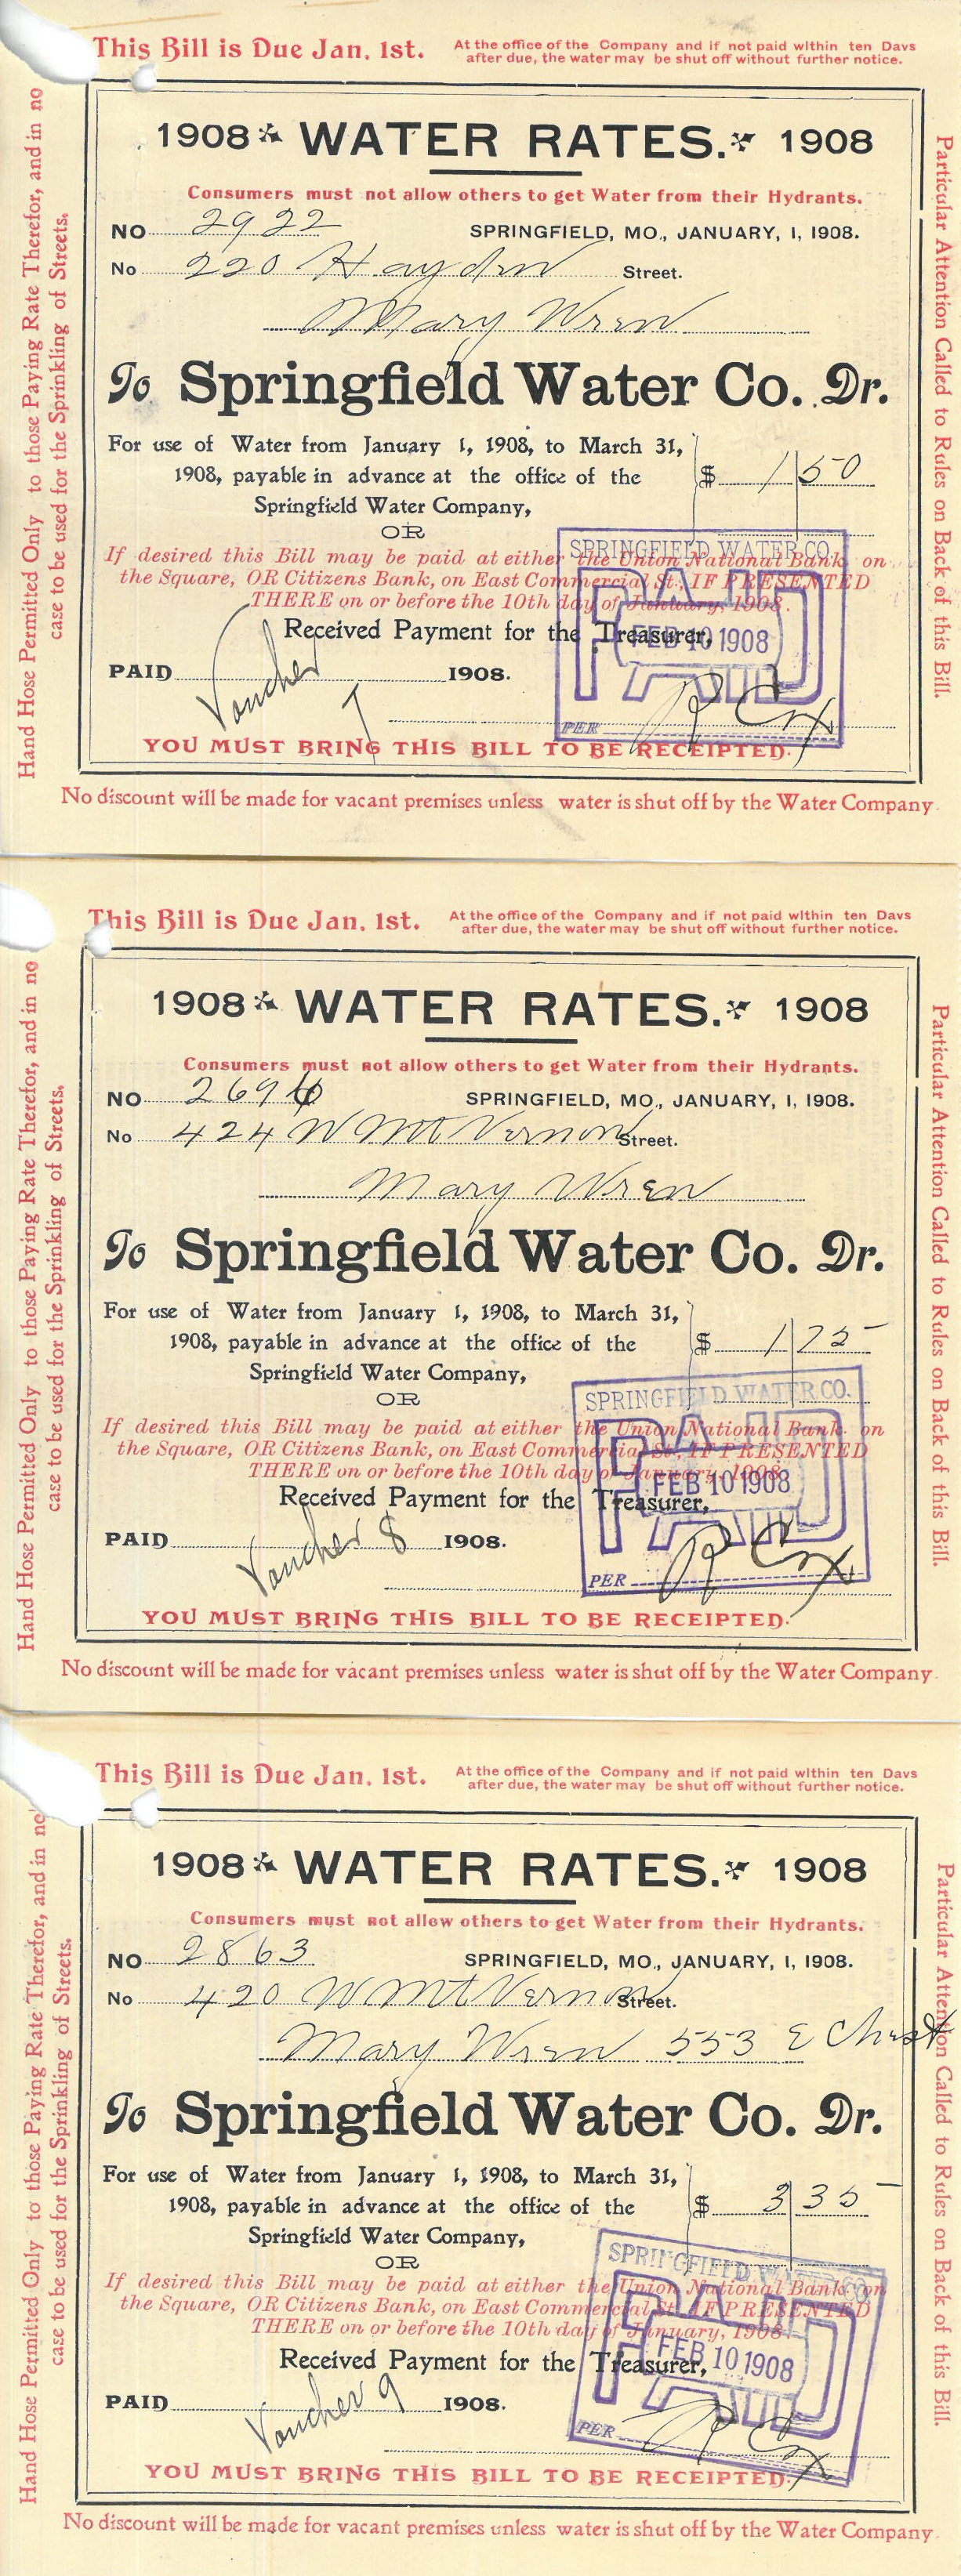 This Bill is Due Jan. 1st.
At the office of the Company and if not paid within ten Days
after due, the water may be shut off without further notice.
Hand Hose Permitted Only to those Paying Rate Therefor, and in no
case to be used for the Sprinkling of Streets.
1908 WATER RATES. 1908
Consumers must not allow others to get Water from their Hydrants.
NO 2922 SPRINGFIELD, MO., JANUARY, 1, 1908.
No 220 Hayden Street.
Mary Wren
To Springfield Water Co. Dr.
For use of Water from January 1, 1908, to March 31,
1908, payable in advance at the office of the $ 1 50
Springfield Water Company,
OR
If desired this Bill may be paid at either the Union National Bank on
the Square, OR Citizens Bank, on East Commercial St., IF PRESENTED
THERE on or before the 10th day of January, 1908.
Received Payment for the Treasurer,
PAID Voucher 7 1908.
SPRINGFIELD WATER CO.
PAID
FEB 10 1908
PER R Cox
YOU MUST BRING THIS BILL TO BE RECEIPTED.
No discount will be made for vacant premises unless water is shut off by the Water Company.
Particular Attention Called to Rules on Back of this Bill.
This Bill is Due Jan. 1st.
At the office of the Company and if not paid within ten Days
after due, the water may be shut off without further notice.
Hand Hose Permitted Only to those Paying Rate Therefor, and in no
case to be used for the Sprinkling of Streets.
1908 WATER RATES. 1908
Consumers must not allow others to get Water from their Hydrants.
NO 2696 SPRINGFIELD, MO., JANUARY, 1, 1908.
No 424 W Mt Vernon Street.
Mary Wren
To Springfield Water Co. Dr.
For use of Water from January 1, 1908, to March 31,
1908, payable in advance at the office of the $ 1 75
Springfield Water Company,
OR
If desired this Bill may be paid at either the Union National Bank on
the Square, OR Citizens Bank, on East Commercial St., IF PRESENTED
THERE on or before the 10th day of January, 1908
Received Payment for the Treasurer,
PAID Voucher 8 1908.
SPRINGFIELD WATER CO.
PAID
FEB 10 1908
PER R Cox
YOU MUST BRING THIS BILL TO BE RECEIPTED.
No discount will be made for vacant premises unless water is shut off by the Water Company.
Particular Attention Called to Rules on Back of this Bill.
This Bill is Due Jan. 1st.
At the office of the Company and if not paid within ten Days
after due, the water may be shut off without further notice.
Hand Hose Permitted Only to those Paying Rate Therefor, and in no
case to be used for the Sprinkling of Streets.
1908 WATER RATES. 1908
Consumers must not allow others to get Water from their Hydrants.
NO 2863 SPRINGFIELD, MO., JANUARY, 1, 1908.
No 420 W Mt Vernon Street.
Mary Wren 553 E Chest
To Springfield Water Co. Dr.
For use of Water from January 1, 1908, to March 31,
1908, payable in advance at the office of the $ 3 35
Springfield Water Company,
OR
If desired this Bill may be paid at either the Union National Bank on
the Square, OR Citizens Bank, on East Commercial St. IF PRESENTED
THERE on or before the 10th day of January, 1908
Received Payment for the Treasurer,
PAID Voucher 9 1908.
SPRINGFIELD WATER CO
PAID
FEB 10 1908
PER R Cox
YOU MUST BRING THIS BILL TO BE RECEIPTED.
No discount will be made for vacant premises unless water is shut off by the Water Company.
Particular Attention Called to Rules on Back of this Bill.